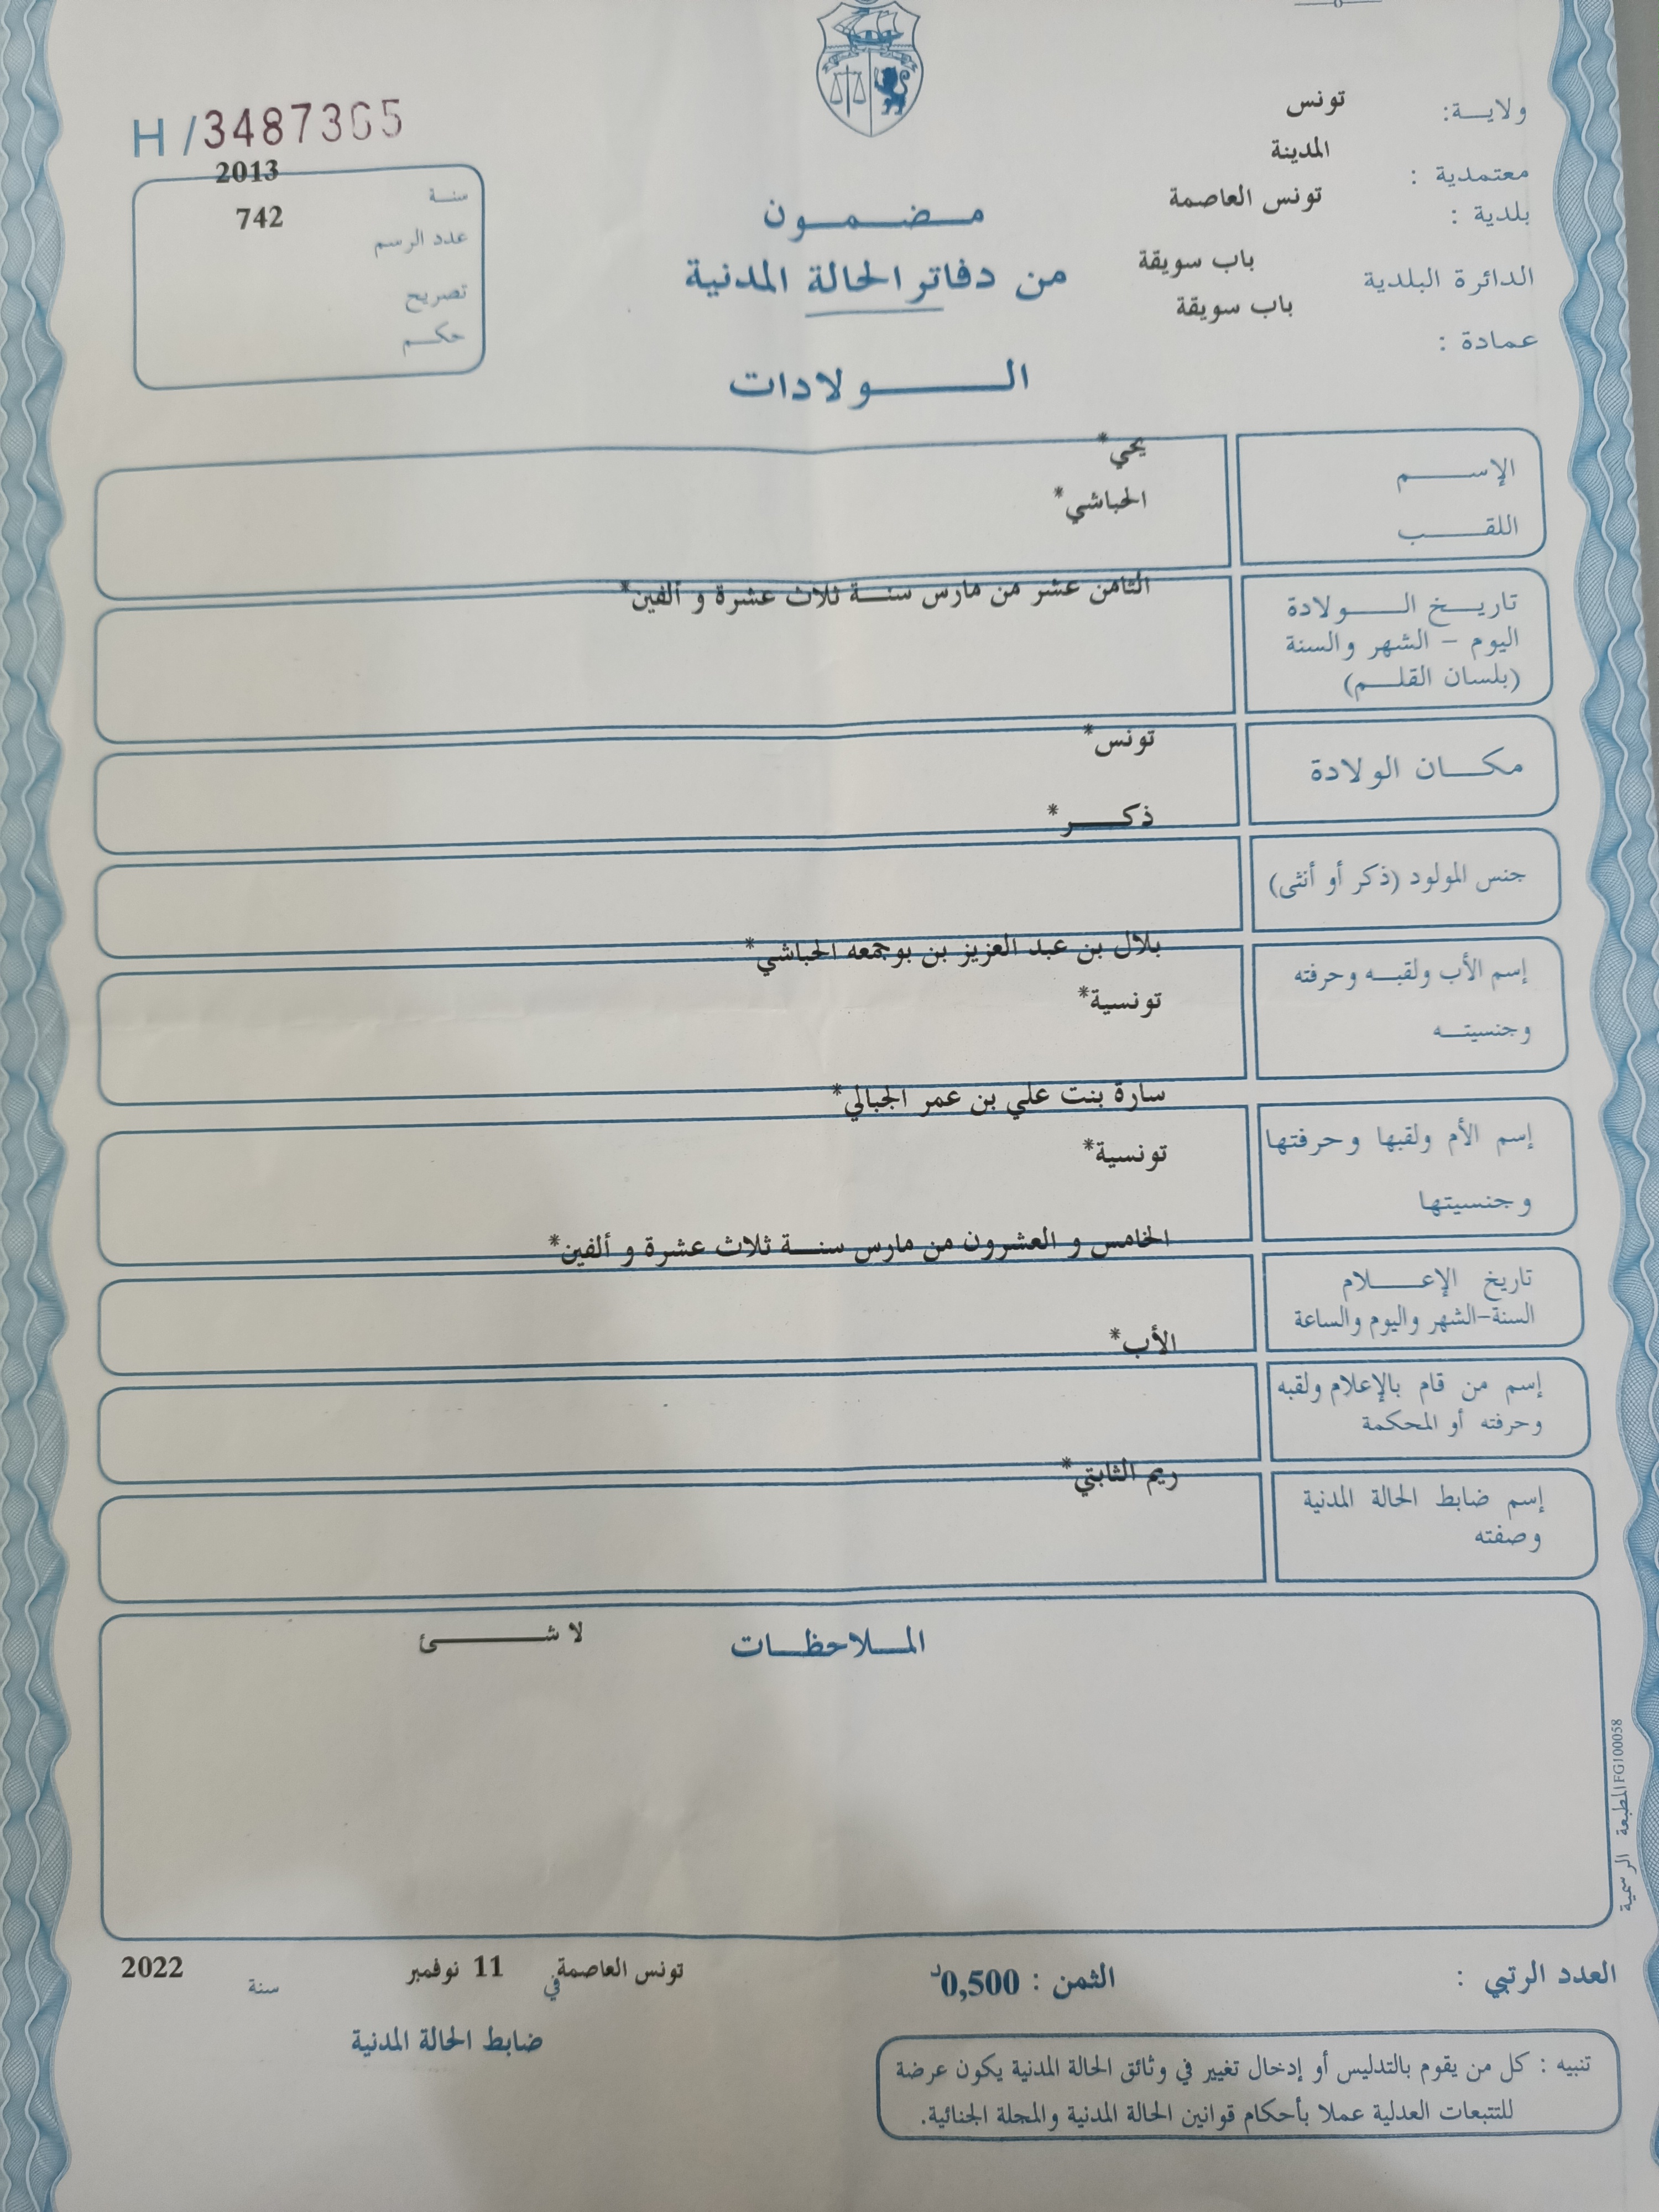 ولايـــة: تونس
معتمدية : المدينة
بلدية : تونس العاصمة
الدائرة البلدية باب سويقة
عمادة : باب سويقة
H /3487365
سنـة 2013
عدد الرسم 742
تصريح
حكـم
مـضـمـون
من دفاتر الحالة المدنية
الـولادات
الإســـم يحي*
اللقـــب الحباشي*
تاريـخ الـــولادة الثامن عشر من مارس سنـة ثلاث عشرة و ألفين*
اليوم – الشهر والسنة
(بلسان القلـم)
مكـــان الولادة تونس*
جنس المولود (ذكر أو أنثى) ذكـــر*
إسم الأب ولقبـه وحرفته بلال بن عبد العزيز بن بوجمعه الحباشي*
وجنسيتـه تونسية*
إسم الأم ولقبها وحرفتها سارة بنت علي بن عمر الجبالي*
وجنسيتها تونسية*
تاريخ الإعـــلام الخامس و العشرون من مارس سنـة ثلاث عشرة و ألفين*
السنة-الشهر واليوم والساعة
إسم من قام بالإعلام ولقبه الأب*
وحرفته أو المحكمة
إسم ضابط الحالة المدنية ريم الثابتي*
وصفته
المـلاحظـات لا شـــئ
المطبعة الرسمية FG100058
العدد الرتبي :
الثمن : 0,500د
تونس العاصمة في 11 نوفمبر سنة 2022
ضابط الحالة المدنية
تنبيه : كل من يقوم بالتدليس أو إدخال تغيير في وثائق الحالة المدنية يكون عرضة
للتتبعات العدلية عملا بأحكام قوانين الحالة المدنية والمجلة الجنائية.